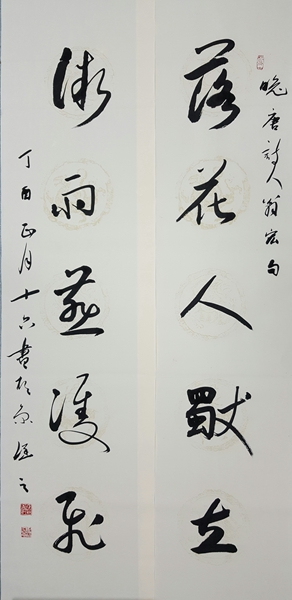 晚唐詩人翁宏句
落花人獨立
微雨燕雙飛
丁酉正月十六書於